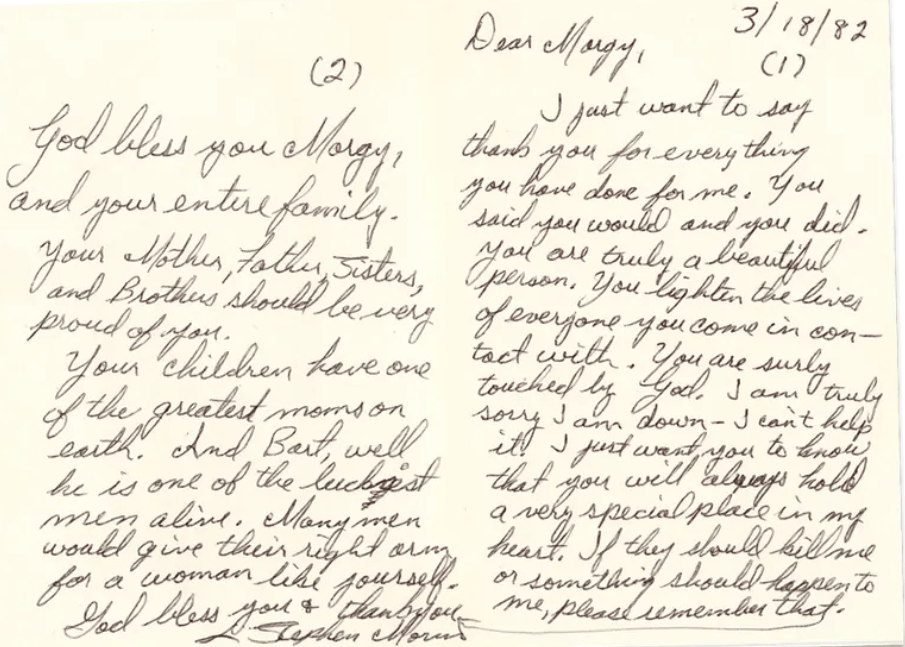 3/18/82
Dear Margy,
(1)
I just want to say
thank you for everything
you have done for me. You
said you would and you did.
You are truly a beautiful
person. You lighten the lives
of everyone you come in con-
tact with. You are surly
touched by God. I am truly
sorry I am down - I can't help
it. I just want you to know
that you will always hold
a very special place in my
heart. If they should kill me
or something should happen to
me, please remember that.
(2)
God bless you Margy,
and your entire family.
Your Mother, Father, Sisters,
and Brothers should be very
proud of you.
Your children have one
of the greatest moms on
earth. And Bart, well
he is one of the luckiest
men alive. Many men
would give their right arm
for a woman like yourself.
God bless you & thank you
Stephen Morin